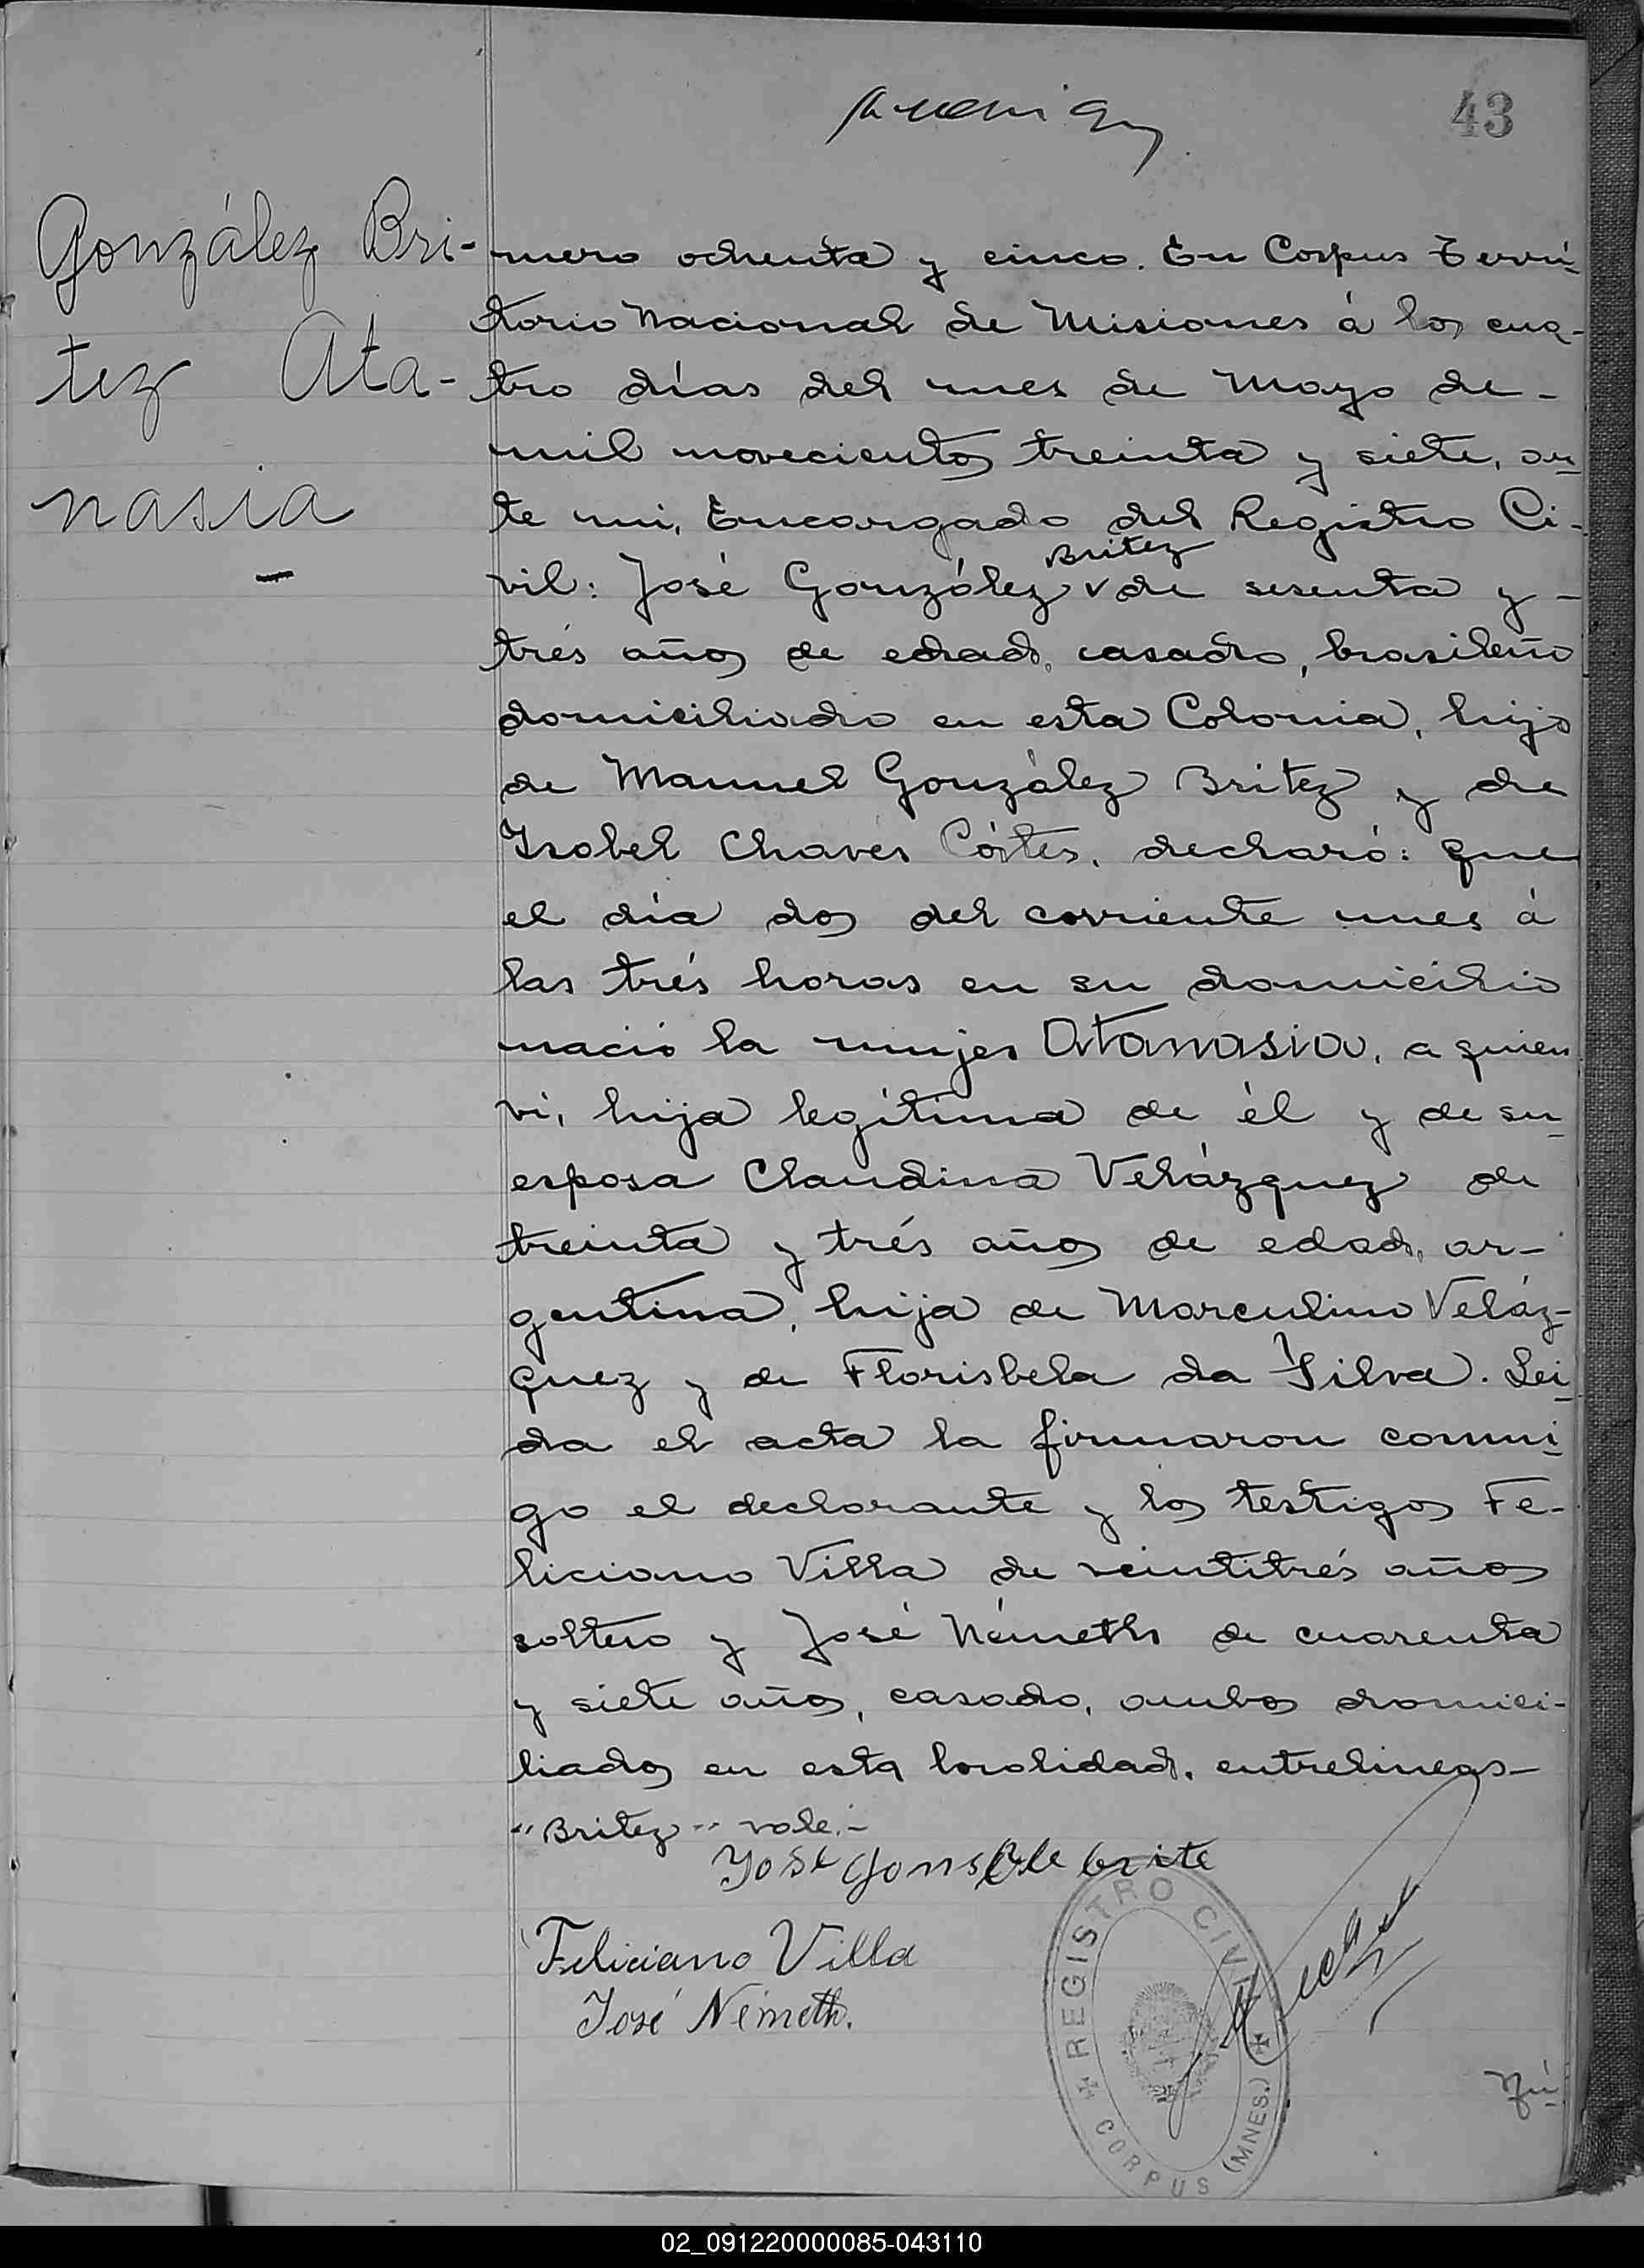 43
González Bri-
tez Ata-
nasia
mero ochenta y cinco. En Corpus Terri-
torio Nacional de Misiones á los cua-
tro días del mes de Mayo de-
mil novecientos treinta y siete, an-
te mi, Encargado del Registro Ci-
Britez
vil: José González v de sesenta y-
trés años de edad, casado, brasileño
domiciliado en esta Colonia, hijo
de Manuel González Britez y de
Isabel Chavés Córtes, declaró: que
el día dos del corriente mes á
las trés horas en su domicilio
nació la mujer Atanasia, a quien
ví, hija legítima de él y de su
esposa Claudina Velázquez de
treinta y trés años de edad, ar-
gentina, hija de Marculino Veláz-
quez y de Florisbela da Silva. Lei-
da el acta la firmaron conmi-
go el declarante y los testigos Fe-
liciano Villa de veintitrés años
soltero y José Németh de cuarenta
y siete años, casado, ambos domici-
liados en esta localidad. entrelineas-
"Britez" vale.-
José Gonsale brite
Feliciano Villa
José Németh.
REGISTRO CIVIL
CORPUS (MNES.)
Nú-
02_091220000085-043110